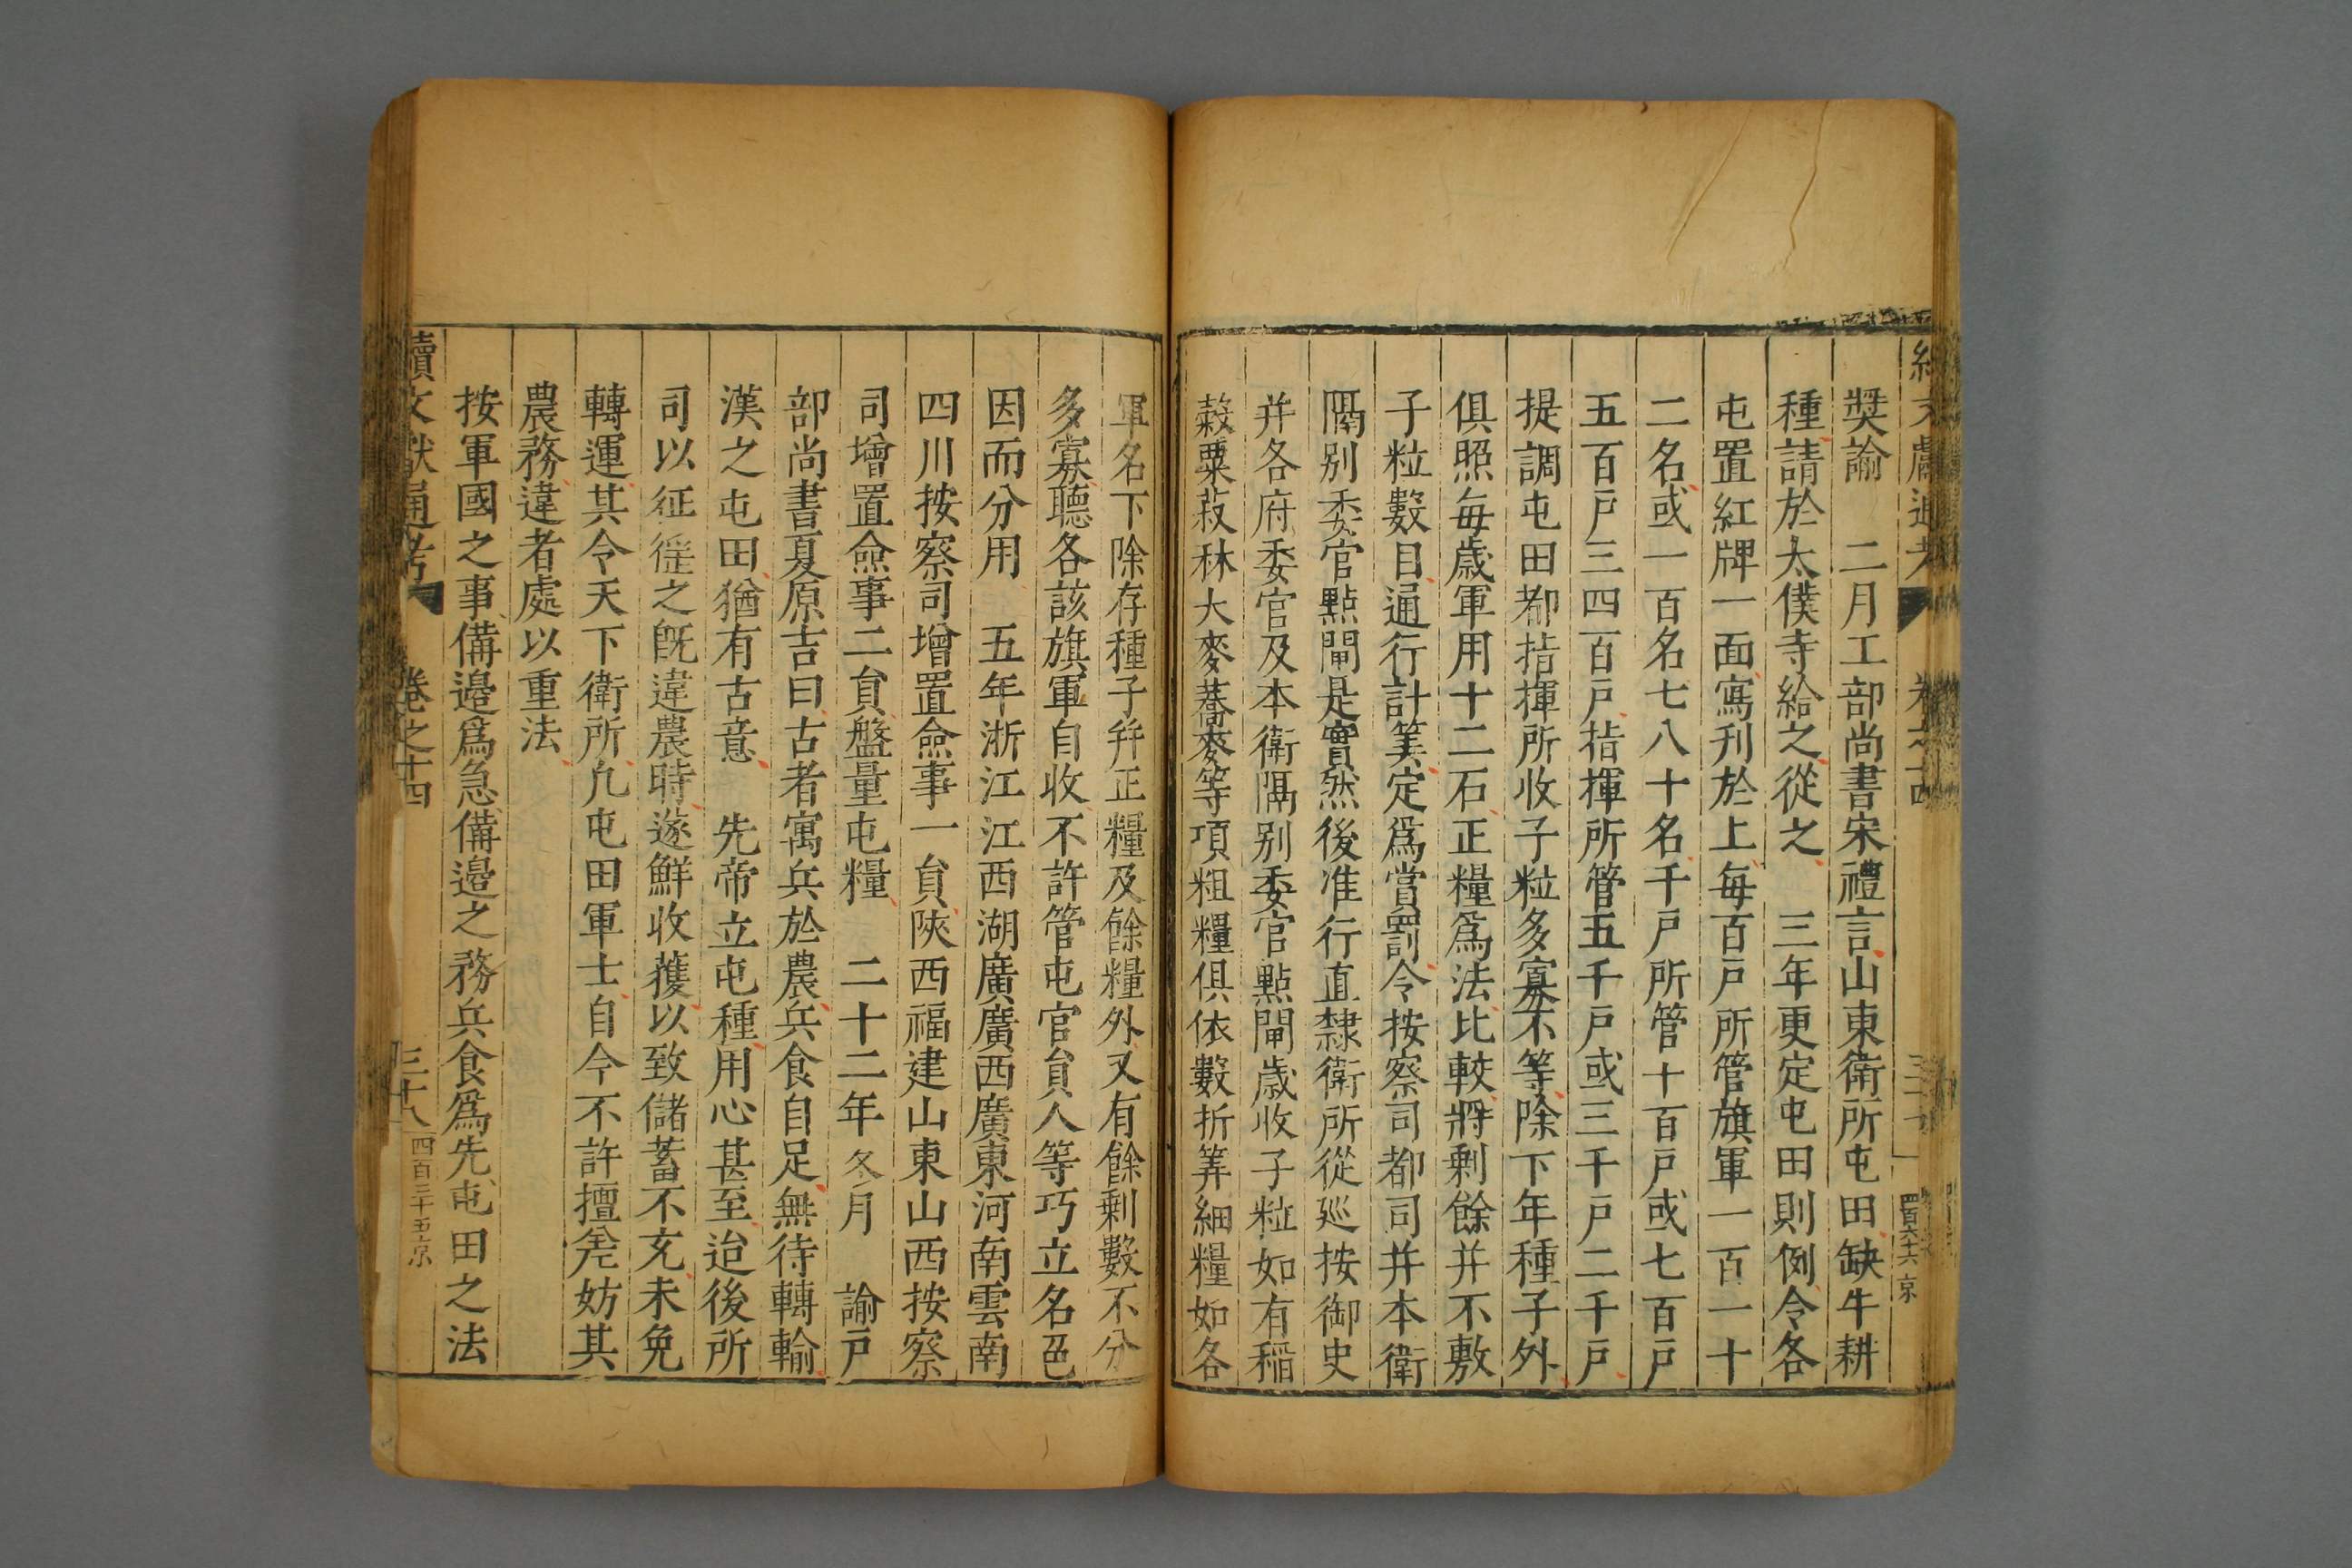 獎諭　二月工部尚書宋禮言山東衛所屯田缺牛耕
種請於太僕寺給之從之　三年更定屯田則例令各
屯置紅牌一面寫刋於上每百戶所管旗軍一百一十
二名或一百名七八十名千戶所管十百戶或七百戶
五百戶三四百戶指揮所管五千戶或三千戶二千戶
提調屯田都指揮所收子粒多寡不等除下年種子外
俱照每歲軍用十二石正糧爲法比較將剩餘并不敷
子粒數目通行計筭定爲賞罰令按察司都司并本衛
隔别委官點閘是實然後准行直隸衛所從廵按御史
并各府委官及本衛隔别委官點閘歲收子粒如有稻
糓粟菽秫大麥蕎麥等項粗糧俱依數折筭細糧如各
軍名下除存種子并正糧及餘糧外又有餘剩數不分
多寡聽各該旗軍自收不許管屯官員人等巧立名色
因而分用　五年浙江江西湖廣廣西廣東河南雲南
四川按察司增置僉事一員陝西福建山東山西按察
司增置僉事二員盤量屯糧　二十二年冬月　諭戶
部尚書夏原吉曰古者寓兵於農兵食自足無待轉輸
漢之屯田猶有古意　先帝立屯種用心甚至迨後所
司以征徭之旣違農時遂鮮收穫以致儲蓄不充未免
轉運其令天下衛所凢屯田軍士自今不許擅差妨其
農務違者處以重法
按軍國之事備邊爲急備邊之務兵食爲先屯田之法
續文獻通考　卷之十四　三十八　四百三十五　京